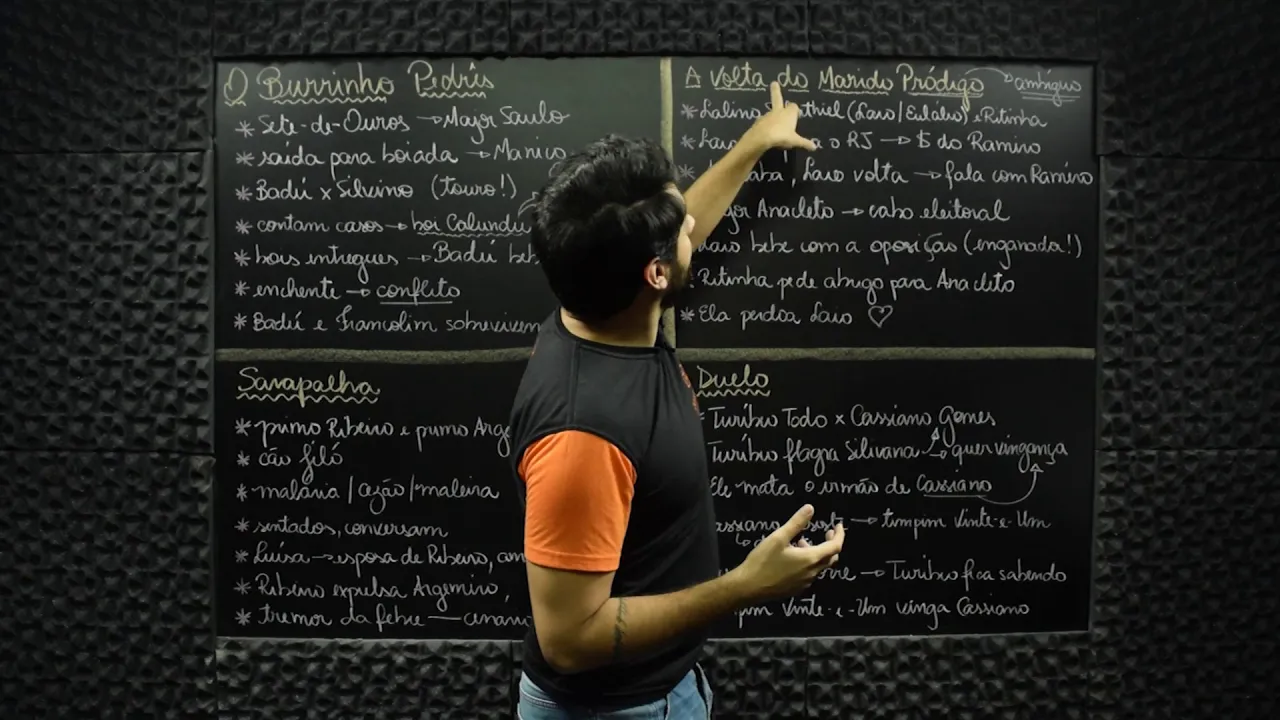 O Burrinho Pedrês
* Sete-de-Ouros → Major Saulo
* saída para boiada → Manico
* Badú x Silvino (touro!)
* contam casos → boi Calundu
* bois entregues → Badú beb
* enchente → conflito
* Badú e Francolim sobrevivem
A Volta do Marido Pródigo → ambíguo
* Lalino thiel (Laio/Eulálio) e Ritinha
* Laio a o RJ → $ do Ramiro
Laio volta → fala com Ramiro
Anacleto → cabo eleitoral
Laio bebe com a oposição (enganada!)
Ritinha pede abrigo para Anacleto
* Ela perdoa Laio ♡
Sarapalha
* primo Ribeiro e primo Arge
* cão Jiló
* malária / sezão / maleira
* sentados, conversam
* Luísa → esposa de Ribeiro, am
* Ribeiro expulsa Argemiro,
* tremor da febre — cenári
Duelo
Turíbio Todo x Cassiano Gomes
Turíbio flagra Silivana → quer vingança
Ele mata o irmão de Cassiano
assiano → timpim Vinte-e-Um
rre → Turíbio fica sabendo
pim Vinte-e-Um vinga Cassiano